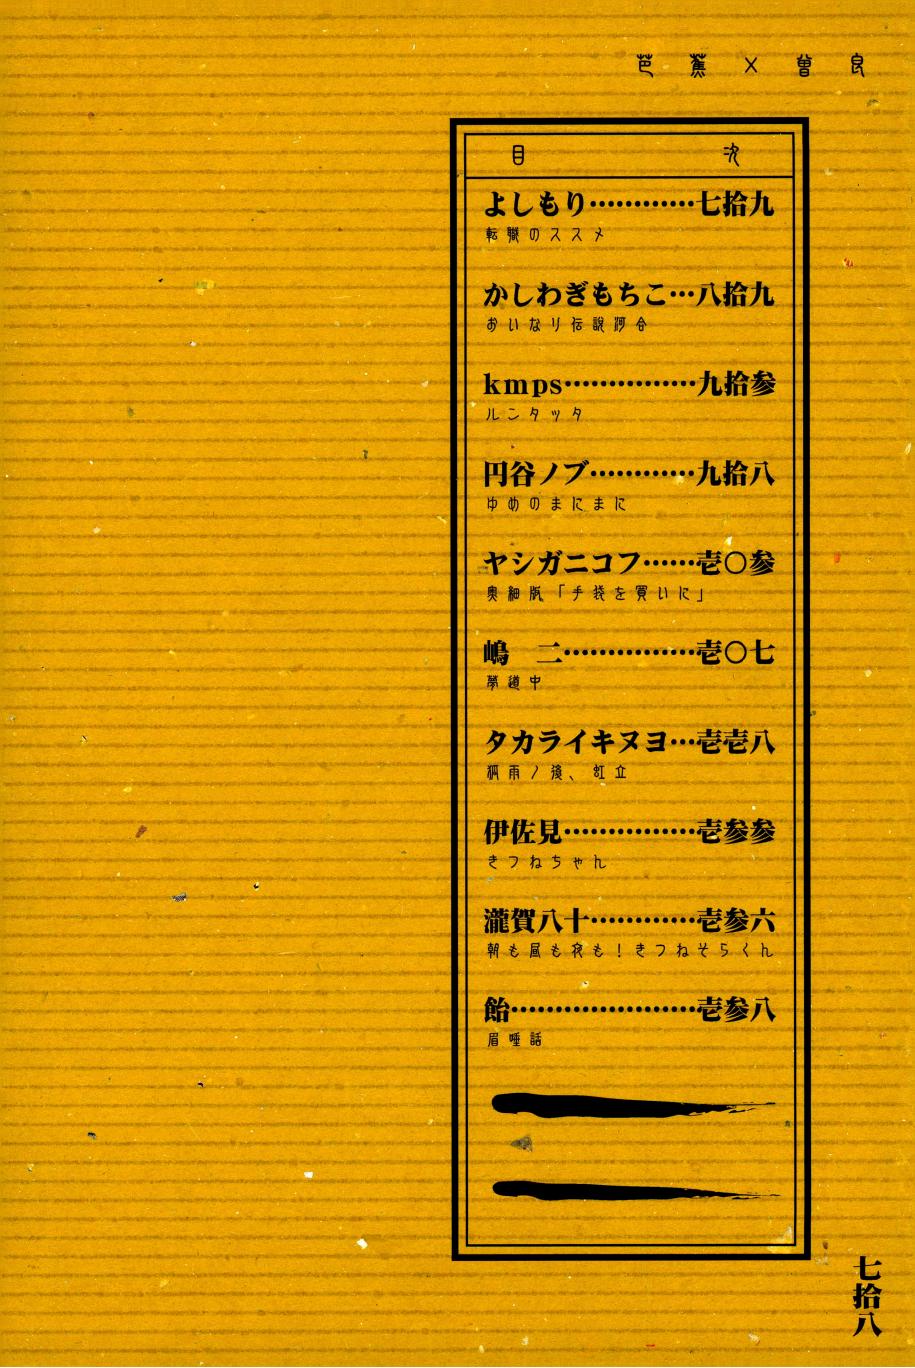 芭蕉×曽良
目次
よしもり…………七拾九
転職のススメ
かしわぎもちこ…八拾九
おいなり伝説河合
kmps……………九拾参
ルンタッタ
円谷ノブ…………九拾八
ゆめのまにまに
ヤシガニコフ……壱〇参
奥細版「手袋を買いに」
嶋　二……………壱〇七
夢道中
タカライキヌヨ…壱壱八
狐雨ノ後、虹立
伊佐見……………壱参参
きつねちゃん
瀧賀八十…………壱参六
朝も昼も夜も！きつねそらくん
飴…………………壱参八
眉唾話
七拾八